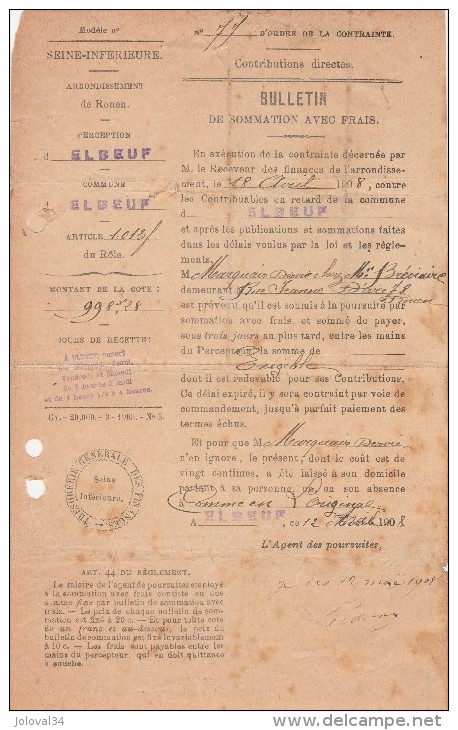 Modèle nº
SEINE-INFÉRIEURE.
ARRONDISSEMENT
de Rouen.
PERCEPTION
d ELBEUF
COMMUNE
d ELBEUF
ARTICLE
du Rôle.
MONTANT DE LA COTE :
998
JOURS DE RECETTE:
A ELBEUF, ouvert
Vendredi et Samedi
de 9 heures à midi
et de 1 heure 1/2 à 4 heures.
TRÉSORERIE GÉNÉRALE DES FINANCES
Seine
Inférieure.
ART. 44 DU RÈGLEMENT.
Le salaire de l'agent de poursuites employé
à la sommation avec frais consiste en une
somme fixe par bulletin de sommation avec
frais. — Le prix de chaque bulletin de som-
mation est fixé à 20 c. — Et pour toute cote
de un franc et au-dessous, le prix du
bulletin de sommation est fixé invariablement
à 10 c. — Les frais sont payables entre les
mains du percepteur, qui en doit quittance
à souche.
Nº 77 D'ORDRE DE LA CONTRAINTE.
Contributions directes.
BULLETIN
DE SOMMATION AVEC FRAIS.
En exécution de la contrainte décernée par
M. le Receveur des finances de l'arrondisse-
ment, le 18 Avril 1908, contre
les Contribuables en retard de la commune
d ELBEUF
et après les publications et sommations faites
dans les délais voulus par la loi et les règle-
ments,
M Marquais Désiré chez Me Bréviaire
demeurant Rue Jeanne Darc 78
Rouen
est prévenu qu'il est soumis à la poursuite par
sommation avec frais, et sommé de payer,
sous trois jours au plus tard, entre les mains
du Percepteur, la somme de
dont il est redevable pour ses Contributions.
Ce délai expiré, il y sera contraint par voie
de commandement, jusqu'à parfait paiement des
termes échus.
Et pour que M Marquais Désiré
n'en ignore, le présent, dont le coût est de
vingt centimes, a été laissé à son domicile
parlant à sa personne, ou en son absence
à Comme en l'Original
A ELBEUF, ce 12 1908
L'Agent des poursuites,
12 mai 1908
Photo joloval34
delcampe.net